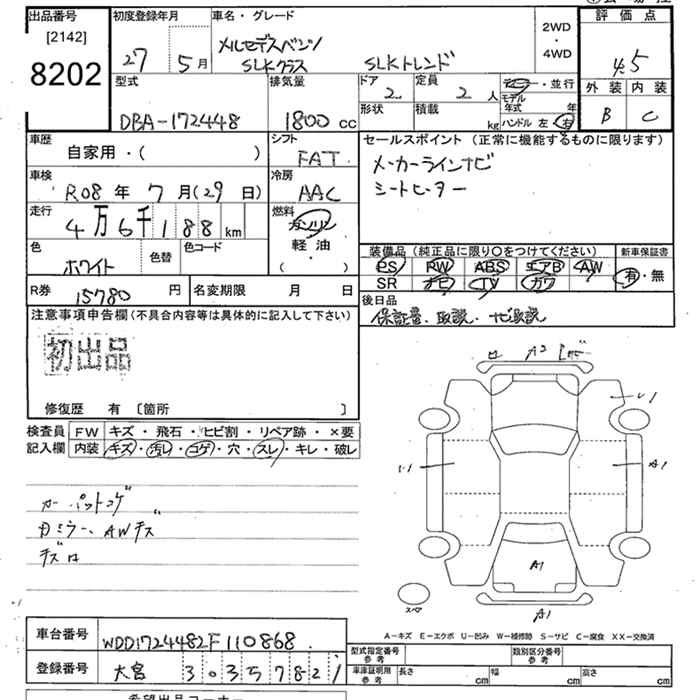 出品番号
[2142]
8202
初度登録年月
27 5月
車名・グレード
メルセデスベンツ
SLKクラス SLKトレンド
2WD
・
4WD
評価点
4.5
外装 内装
B C
型式
DBA-172448
排気量
1800 cc
ドア
2
定員
2人
形状
積載
kg
・並行
モデル
年式 年
ハンドル 左 右
車歴
自家用・( )
シフト
FAT
セールスポイント (正常に機能するものに限ります)
メーカーラインナビ
シートヒーター
車検
R08年 7月(29日)
冷房
AAC
走行
4万6千188 km
燃料
ガソリン
軽油
( )
色
ホワイト
色替
色コード
装備品 (純正品に限り〇をつけてください)
PS PW ABS エアB AW
SR ナビ TV カワ
新車保証書
有・無
R券
15780円
名変期限 月 日
後日品
保証書、取説、ナビ取説
注意事項申告欄 (不具合内容等は具体的に記入して下さい)
初出品
修復歴 有 〔箇所 〕
検査員
記入欄
FW キズ・飛石・ヒビ割・リペア跡・×要
内装 キズ・汚レ・コゲ・穴・スレ・キレ・破レ
カーペットコゲ
AWキズ
A1
A1
A1
スペア
A－キズ E－エクボ U－凹み W－補修跡 S－サビ C－腐食 XX－交換済
車台番号
WDD1724482F110868
登録番号
大宮 303 5 7821
型式指定番号
参考
類別区分番号
参考
車庫証明用
参考
長さ cm
幅 cm
高さ cm
希望出品コーナー